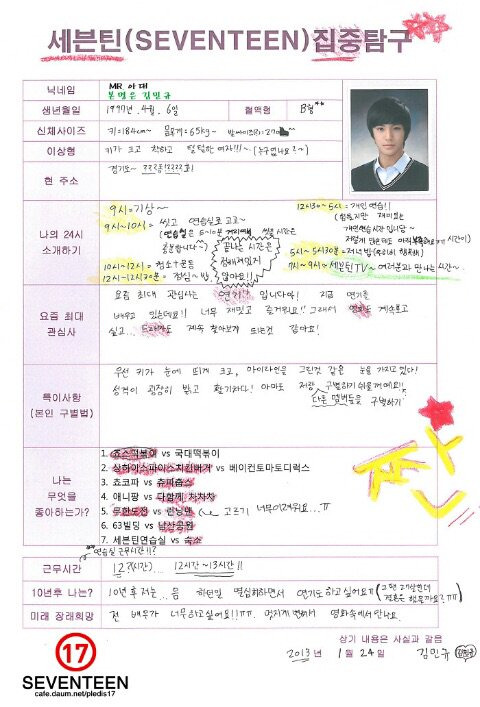 세븐틴(SEVENTEEN) 집중탐구
닉네임
MR 아대
본명은 김민규
생년월일
1997년 4월 6일
혈액형
B형**
신체사이즈
키=184cm~ 몸무게=65kg~
이상형
키가 크고 착하고 털털한 여자!!!~ (누구없나요?~)
현 주소
경기도~
나의 24시
소개하기
9시=기상~
9시~10시= 씻고 연습실로 고고~
10시~12시=청소+운동
12시~12시30분=점심~밥
끝나는 시간은
정해져있지
않아요!!
12시30~5시=개인연습!!
(힘들지만 재미있는
개인연습시간 입니당~
5시~5시30분=저녁밥
7시~9시=세븐틴TV~ 여러분과 만나는시간~
요즘 최대
관심사는
요즘 최대 관심사는 연기!! 입니다아! 지금 연기를
배우고 있는데요!! 너무 재밌고 즐거워요!! 그래서 영화도 계속보고
싶고... 드라마도 계속 찾아보게 되는것 같아요!
특이사항
(본인 구별법)
우선 키가 눈에 띄게 크고, 아이라인을 그린것 같은 눈을 가지고 있다!
성격이 굉장히 밝고 활기차다! 아마도 저랑 구별하기 쉬울꺼예요!!
다른 멤버들을 구별하기
짠
나는
무엇을
좋아하는가?
1. 죠스떡볶이 vs 국대떡볶이
2. 상하이스파이스치킨버거 vs 베이컨토마토디럭스
3. 쵸코파 vs 츄파츕스
4. 애니팡 vs 다함께 차차차
5. 무한도전 vs 런닝맨 고르기 너무어려워요...ㅠ
6. 63빌딩 vs 남산공원
7. 세븐틴연습실 vs 숙소
**연습실 근무시간!!?
근무시간
12?(시간)... 12시간~13시간!!
10년후 나는?
10년 후 저는..음 하던일 열심히하면서 연기도 하고싶어요ㅠ
미래 장래희망
전 배우가 너무하고싶어요!!ㅠㅠ. 멋지게 변해서 영화속에서 만나요.
상기 내용은 사실과 같음
2013년 1월 24일 김민규
17
SEVENTEEN
cafe.daum.net/pledis17